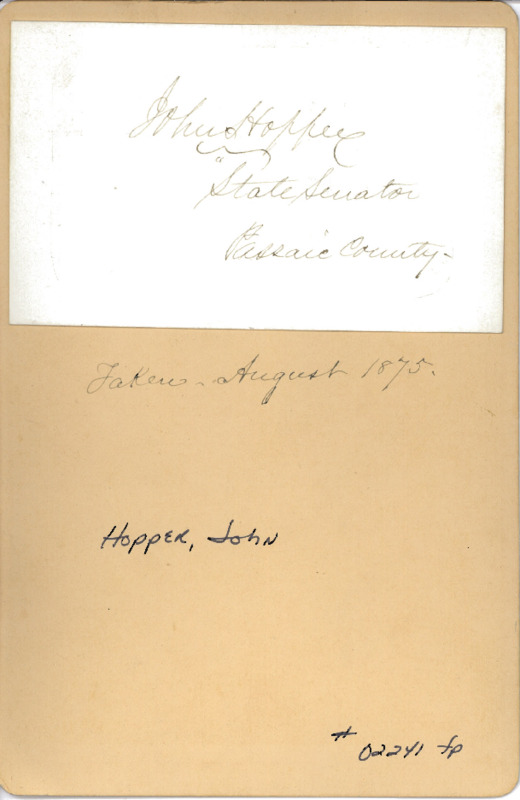 John Hopper
"State Senator
Passaic County-
Taken - August 1875.
Hopper, John
# 02241 fp